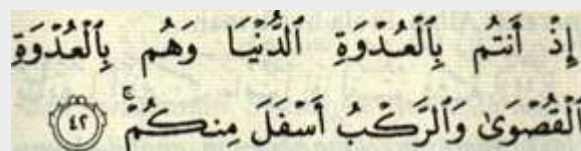 إِذْ أَنتُم بِالْعُدْوَةِ الدُّنْيَا وَهُم بِالْعُدْوَةِ
الْقُصْوَىٰ وَالرَّكْبُ أَسْفَلَ مِنكُمْ ۚ ٤٢